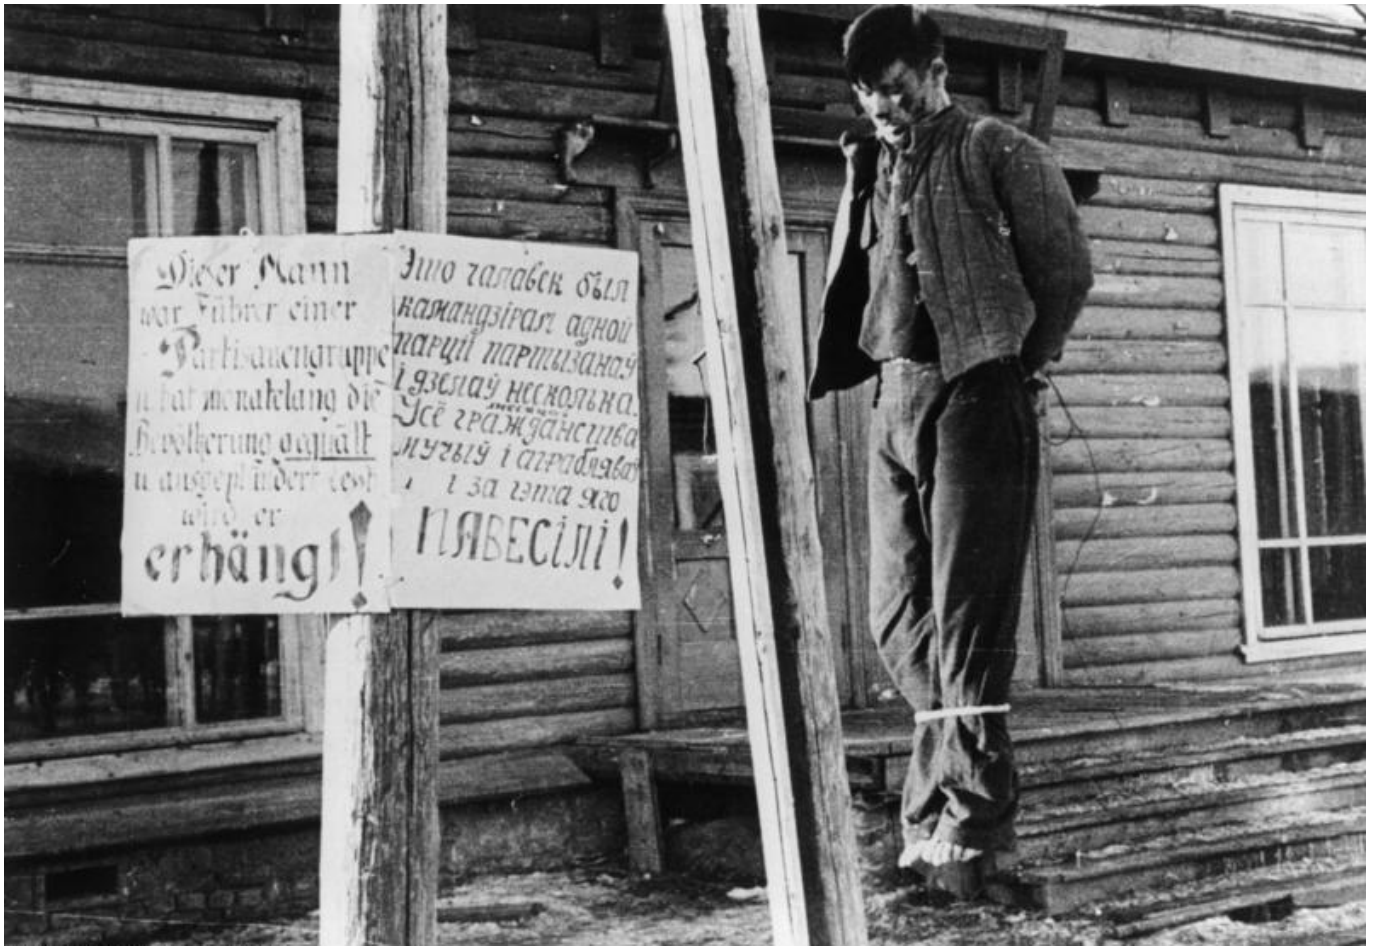 Dieser Mann
war Führer einer
Partisanengruppe
u. hat monatelang die
Bevölkerung gequält
u. ausgeplündert
wird er
erhängt!
Это чалавек был
камандзірам адной
парціі партызанаў
і дзелаў несколька
Усё гражданства
мучыў і аграбляваў
і за гэта яго
ПАВЕСІЛІ!